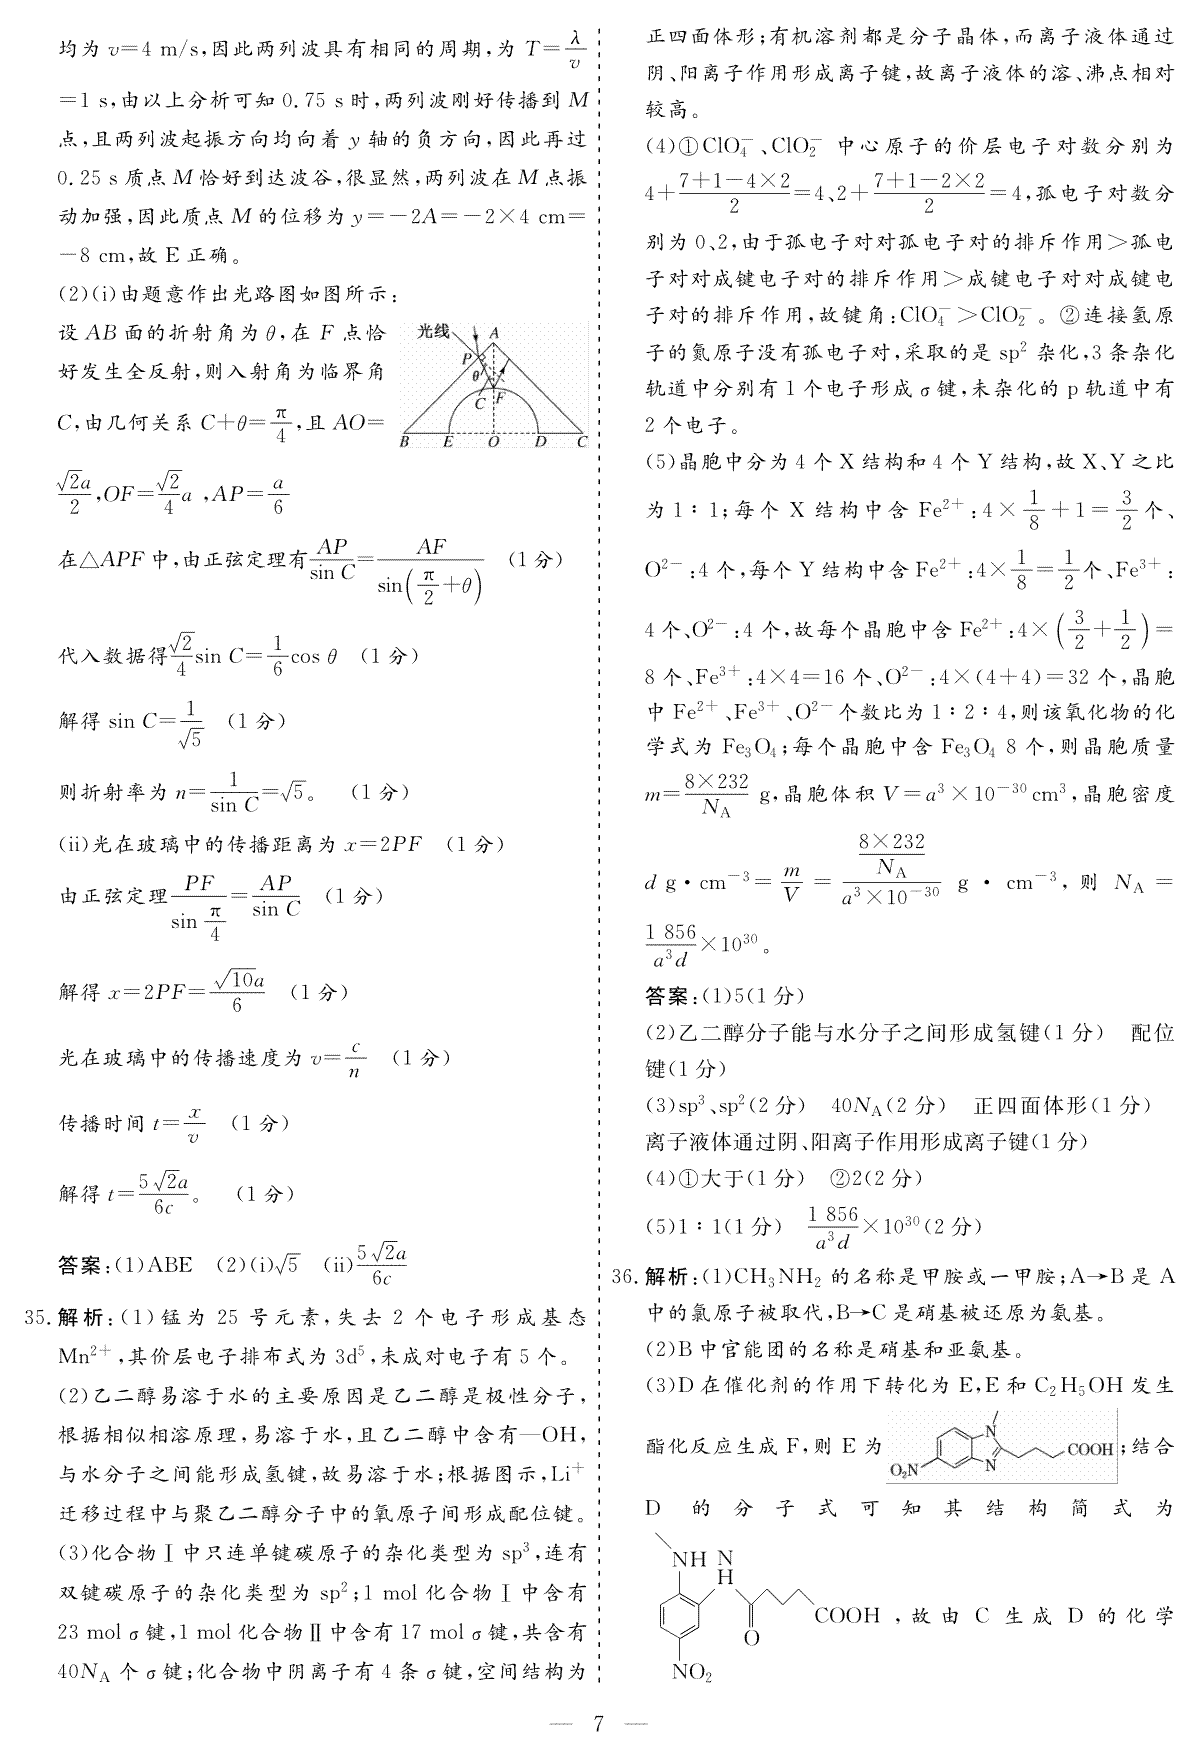 均为 v=4 m/s,因此两列波具有相同的周期,为 T=λ/v
=1 s,由以上分析可知 0.75 s 时,两列波刚好传播到 M
点,且两列波起振方向均向着 y 轴的负方向,因此再过
0.25 s 质点 M 恰好到达波谷,很显然,两列波在 M 点振
动加强,因此质点 M 的位移为 y=−2A=−2×4 cm=
−8 cm,故 E 正确。
(2)(ⅰ)由题意作出光路图如图所示:
设 AB 面的折射角为 θ,在 F 点恰
好发生全反射,则入射角为临界角
C,由几何关系 C+θ=π/4,且 AO=
光线 A P θ C F B E O D C
√2a/2,OF=√2/4 a ,AP=a/6
在△APF 中,由正弦定理有 AP/sin C=AF/sin(π/2+θ) (1 分)
代入数据得 √2/4 sin C=1/6 cos θ (1 分)
解得 sin C=1/√5 (1 分)
则折射率为 n=1/sin C=√5。 (1 分)
(ⅱ)光在玻璃中的传播距离为 x=2PF (1 分)
由正弦定理 PF/sin π/4=AP/sin C (1 分)
解得 x=2PF=√10a/6 (1 分)
光在玻璃中的传播速度为 v=c/n (1 分)
传播时间 t=x/v (1 分)
解得 t=5√2a/6c。 (1 分)
答案:(1)ABE (2)(ⅰ)√5 (ⅱ)5√2a/6c
35. 解析:(1)锰为 25 号元素,失去 2 个电子形成基态
Mn²⁺,其价层电子排布式为 3d⁵,未成对电子有 5 个。
(2)乙二醇易溶于水的主要原因是乙二醇是极性分子,
根据相似相溶原理,易溶于水,且乙二醇中含有—OH,
与水分子之间能形成氢键,故易溶于水;根据图示,Li⁺
迁移过程中与聚乙二醇分子中的氧原子间形成配位键。
(3)化合物Ⅰ中只连单键碳原子的杂化类型为 sp³,连有
双键碳原子的杂化类型为 sp²;1 mol 化合物Ⅰ中含有
23 mol σ 键,1 mol 化合物Ⅱ中含有 17 mol σ 键,共含有
40N_A 个 σ 键;化合物中阴离子有 4 条 σ 键,空间结构为
正四面体形;有机溶剂都是分子晶体,而离子液体通过
阴、阳离子作用形成离子键,故离子液体的溶、沸点相对
较高。
(4)①ClO₄⁻、ClO₂⁻ 中心原子的价层电子对数分别为
4+(7+1−4×2)/2=4、2+(7+1−2×2)/2=4,孤电子对数分
别为 0、2,由于孤电子对对孤电子对的排斥作用>孤电
子对对成键电子对的排斥作用>成键电子对对成键电
子对的排斥作用,故键角:ClO₄⁻>ClO₂⁻。②连接氢原
子的氮原子没有孤电子对,采取的是 sp² 杂化,3 条杂化
轨道中分别有 1 个电子形成 σ 键,未杂化的 p 轨道中有
2 个电子。
(5)晶胞中分为 4 个 X 结构和 4 个 Y 结构,故 X、Y 之比
为 1∶1;每个 X 结构中含 Fe²⁺:4×1/8+1=3/2个、
O²⁻:4 个,每个 Y 结构中含 Fe²⁺:4×1/8=1/2个、Fe³⁺:
4 个、O²⁻:4 个,故每个晶胞中含 Fe²⁺:4×(3/2+1/2)=
8 个、Fe³⁺:4×4=16 个、O²⁻:4×(4+4)=32 个,晶胞
中 Fe²⁺、Fe³⁺、O²⁻ 个数比为 1∶2∶4,则该氧化物的化
学式为 Fe₃O₄;每个晶胞中含 Fe₃O₄ 8 个,则晶胞质量
m=8×232/N_A g,晶胞体积 V=a³×10⁻³⁰ cm³,晶胞密度
d g·cm⁻³=m/V=(8×232/N_A)/(a³×10⁻³⁰) g·cm⁻³,则 N_A=
1 856/a³d×10³⁰。
答案:(1)5(1 分)
(2)乙二醇分子能与水分子之间形成氢键(1 分) 配位
键(1 分)
(3)sp³、sp²(2 分) 40N_A(2 分) 正四面体形(1 分)
离子液体通过阴、阳离子作用形成离子键(1 分)
(4)①大于(1 分) ②2(2 分)
(5)1∶1(1 分) 1 856/a³d×10³⁰(2 分)
36. 解析:(1)CH₃NH₂ 的名称是甲胺或一甲胺;A→B 是 A
中的氯原子被取代,B→C 是硝基被还原为氨基。
(2)B 中官能团的名称是硝基和亚氨基。
(3)D 在催化剂的作用下转化为 E,E 和 C₂H₅OH 发生
酯化反应生成 F,则 E 为 O₂N N N COOH;结合
D 的分子式可知其结构简式为
NH N H O NO₂ COOH,故由 C 生成 D 的化学
— 7 —